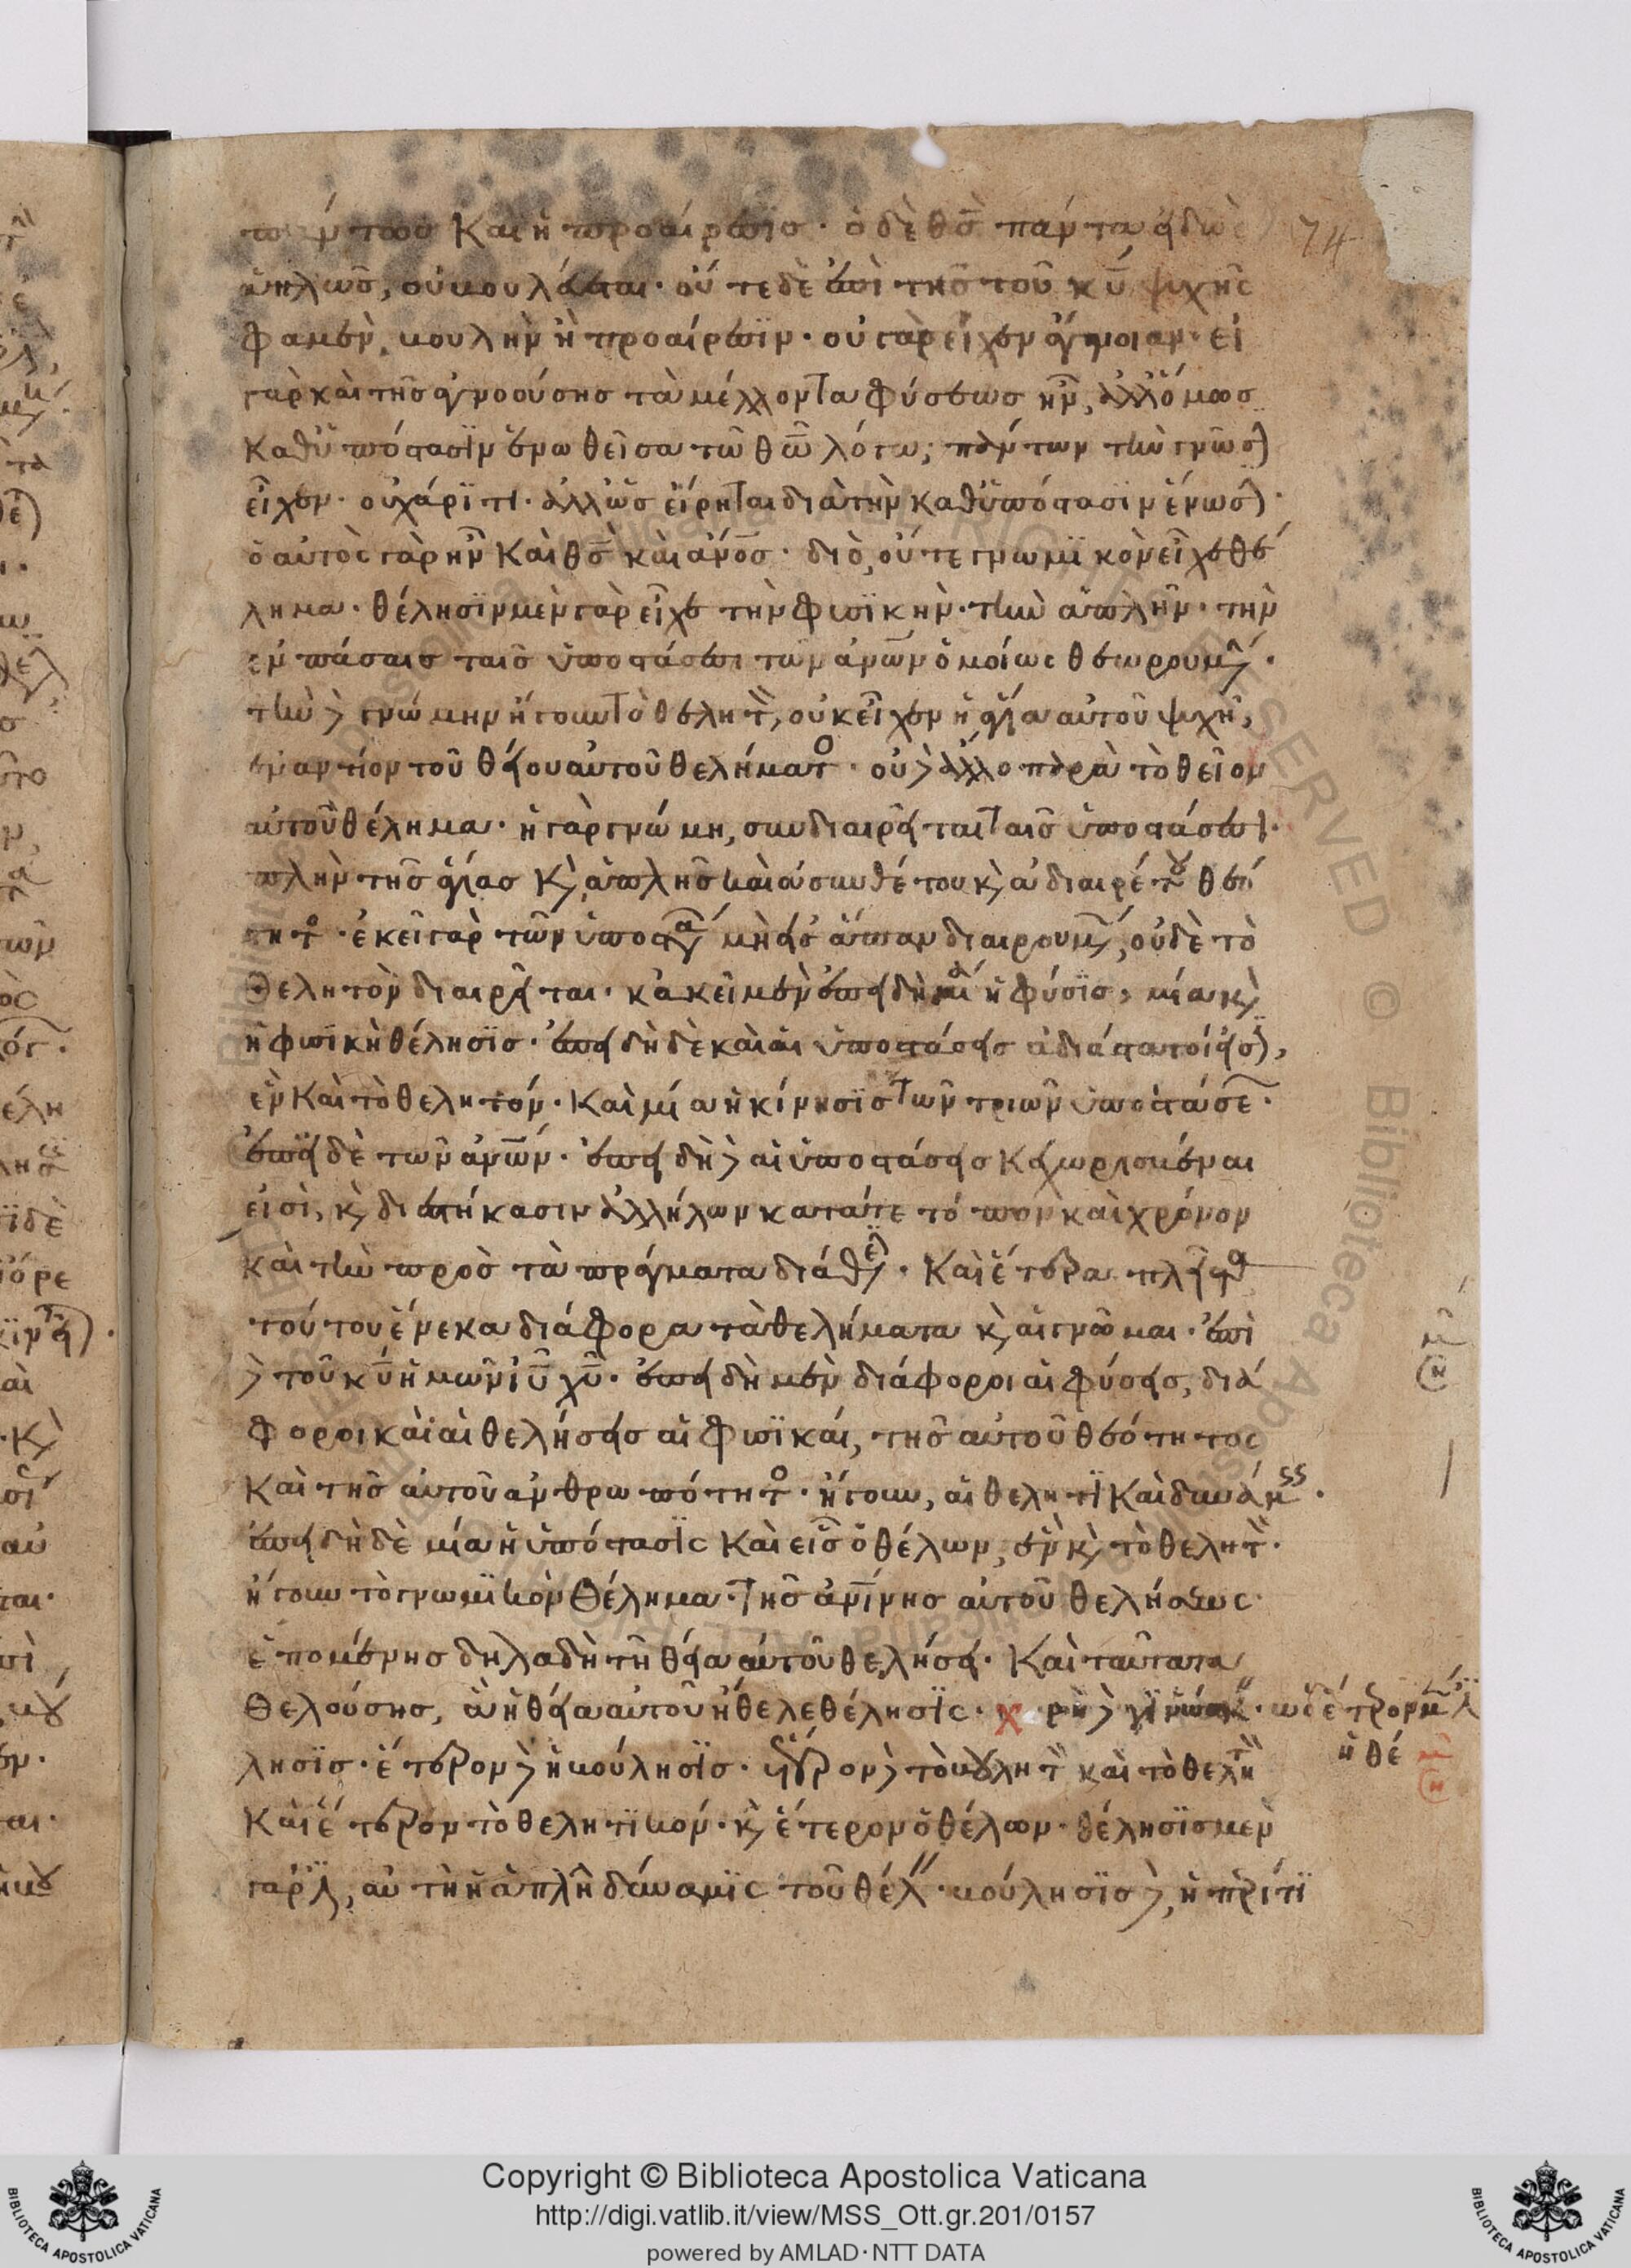 πάντως καὶ ἡ προαίρεσις· ὁ δὲ θς̅ πάντα εἰδὼς 74
ἁπλῶς, οὐ βουλεύεται· οὔτε δὲ ἐπὶ τῆς τοῦ κυ̅ ψυχῆς
φαμὲν, βουλὴν ἢ προαίρεσιν· οὐ γὰρ εἶχεν ἄγνοιαν· εἰ
γὰρ καὶ τῆς ἀγνοούσης τὰ μέλλοντα φύσεως ἦν, ἀλλ' ὅμως
καθ' ὑπόστασιν ἑνωθεῖσα τῶ θω̅ λόγω, πάντων τὴν γνῶσ)
εἶχεν· οὐ χάριτι· ἀλλ' ὡς εἴρηται διὰ τὴν καθ' ὑπόστασιν ἕνωσ)·
ὁ αὐτὸς γὰρ ἦν καὶ θς̅ καὶ ανο̅ς· διὸ, οὔτε γνωμικὸν εἶχε θέ
λημα· θέλησιν μὲν γὰρ εἶχε τὴν φυσικὴν· τὴν ἁπλῆν· τὴν
ἐν πάσαις ταῖς ὑποστάσεσι τῶν ανω̅ν ὁμοίως θεωρουμ)·
τὴν δὲ γνώμην ἤγουν τὸ θελητ̀, οὐκ εἶχεν ἡ ἁγία αὐτοῦ ψυχὴ,
ἐναντίον τοῦ θείου αὐτοῦ θελήματο· οὐδὲ ἄλλο παρὰ τὸ θεῖον
αὐτοῦ θέλημα· ἡ γὰρ γνώμη, συνδιαιρεῖται ταῖς ὑποστάσεσι·
πλὴν τῆς ἁγίας κ, ἁπλῆς καὶ ἀσυνθέτου κ, ἀδιαιρέτου θεό
τητο· ἐκεῖ γὰρ τῶν ὑποστα μὴ εἰς ἅπαν διαιρουμ), οὐδὲ τὸ
θελητὸν διαιρεῖται· κἀκεῖ μὲν ἐπειδὴ μία ἡ φύσις, μία κ,
ἡ φυσικὴ θέλησις· ἐπειδὴ δὲ καὶ αἱ ὑποστάσεις ἀδιάστατοί εἰσ),
ἓν καὶ τὸ θελητόν· καὶ μία ἡ κίνησις τῶν τριῶν ὑποστάσε·
ἐπεὶ δὲ τῶν ανω̅ν· ἐπειδὴ δὲ αἱ ὑποστάσεις κεχωρισμέναι
εἰσὶ, κ, διεστήκασιν ἀλλήλων κατά τε τόπον καὶ χρόνον
καὶ τὴν πρὸς τὰ πράγματα διάθε)· καὶ ἕτερα πλεῖστα
τούτου ἕνεκα διάφορα τὰ θελήματα κ, αἱ γνῶμαι· ἐπὶ
δὲ τοῦ κυ̅ ἡμῶν ιυ̅ χυ̅· ἐπειδὴ μὲν διάφοροι αἱ φύσεις, διά
φοροι καὶ αἱ θελήσεις αἱ φυσικαί, τῆς αὐτοῦ θεότητος
καὶ τῆς αὐτοῦ ἀνθρωπότητο· ἤγουν, αἱ θελητι καὶ δυνάμ·
ἐπειδὴ δὲ μία ἡ ὑπόστασις καὶ εἷς ὁ θέλων, ἓν κ, τὸ θελητ̀·
ἤγουν τὸ γνωμικὸν θέλημα· τῆς ανι̅νης αὐτοῦ θελήσεως·
ἑπομένης δηλαδὴ τῆ θεία αὐτοῦ θελήσει· καὶ ταῦτα
θελούσης, ἃ ἡ θεία αὐτοῦ ἤθελε θέλησις· χρὴ δὲ γινώσκ· ὡς ἕτερον μ
ἡ θέ
λησις· ἕτερον δὲ ἡ βούλησις· ἕτερον δὲ τὸ βουλητ̀ καὶ τὸ θελητ̀
καὶ ἕτερον τὸ θελητικόν· κ, ἕτερον ὁ θέλων· θέλησις μὲν
γάρ, αὐτὴ ἡ ἁπλῆ δύναμις τοῦ θέλ· βούλησις δὲ, ἡ περί τι
Copyright © Biblioteca Apostolica Vaticana
http://digi.vatlib.it/view/MSS_Ott.gr.201/0157
powered by AMLAD·NTT DATA